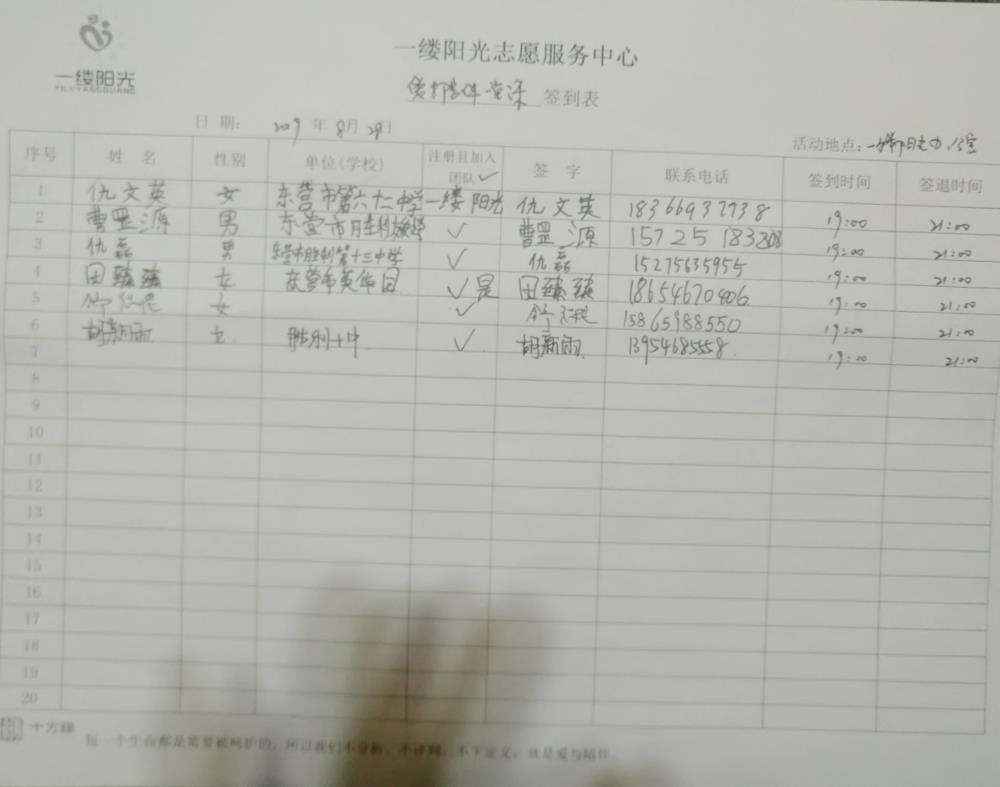 一缕阳光
YILVYANGGUANG
一缕阳光志愿服务中心
签到表
日 期: 年 8月 28日
活动地点:
序号 姓 名 性别 单位(学校) 注册且加入团队✓ 签 字 联系电话 签到时间 签退时间
1 仇文英 女 东营市第六十二中学 一缕阳光 仇文英 18366937738 19:00 21:00
2 曹罡源 男 东营市胜利 ✓ 曹罡源 15725183208 19:00 21:00
3 仇磊 男 东营市胜利第十三中学 ✓ 仇磊 15275635955 19:00 21:00
4 田臻臻 女 东营市英华园 ✓是 田臻臻 18654670406 19:00 21:00
5 女 ✓ 15865988550 19:00 21:00
6 胡新雨 女 胜利十中 ✓ 胡新雨 13954685558 19:00 21:00
7
8
9
10
11
12
13
14
15
16
17
18
19
20
十方缘
每一个生命都是需要被呵护的,所以我们不分析、不评判、不下定义,就是爱与陪伴。